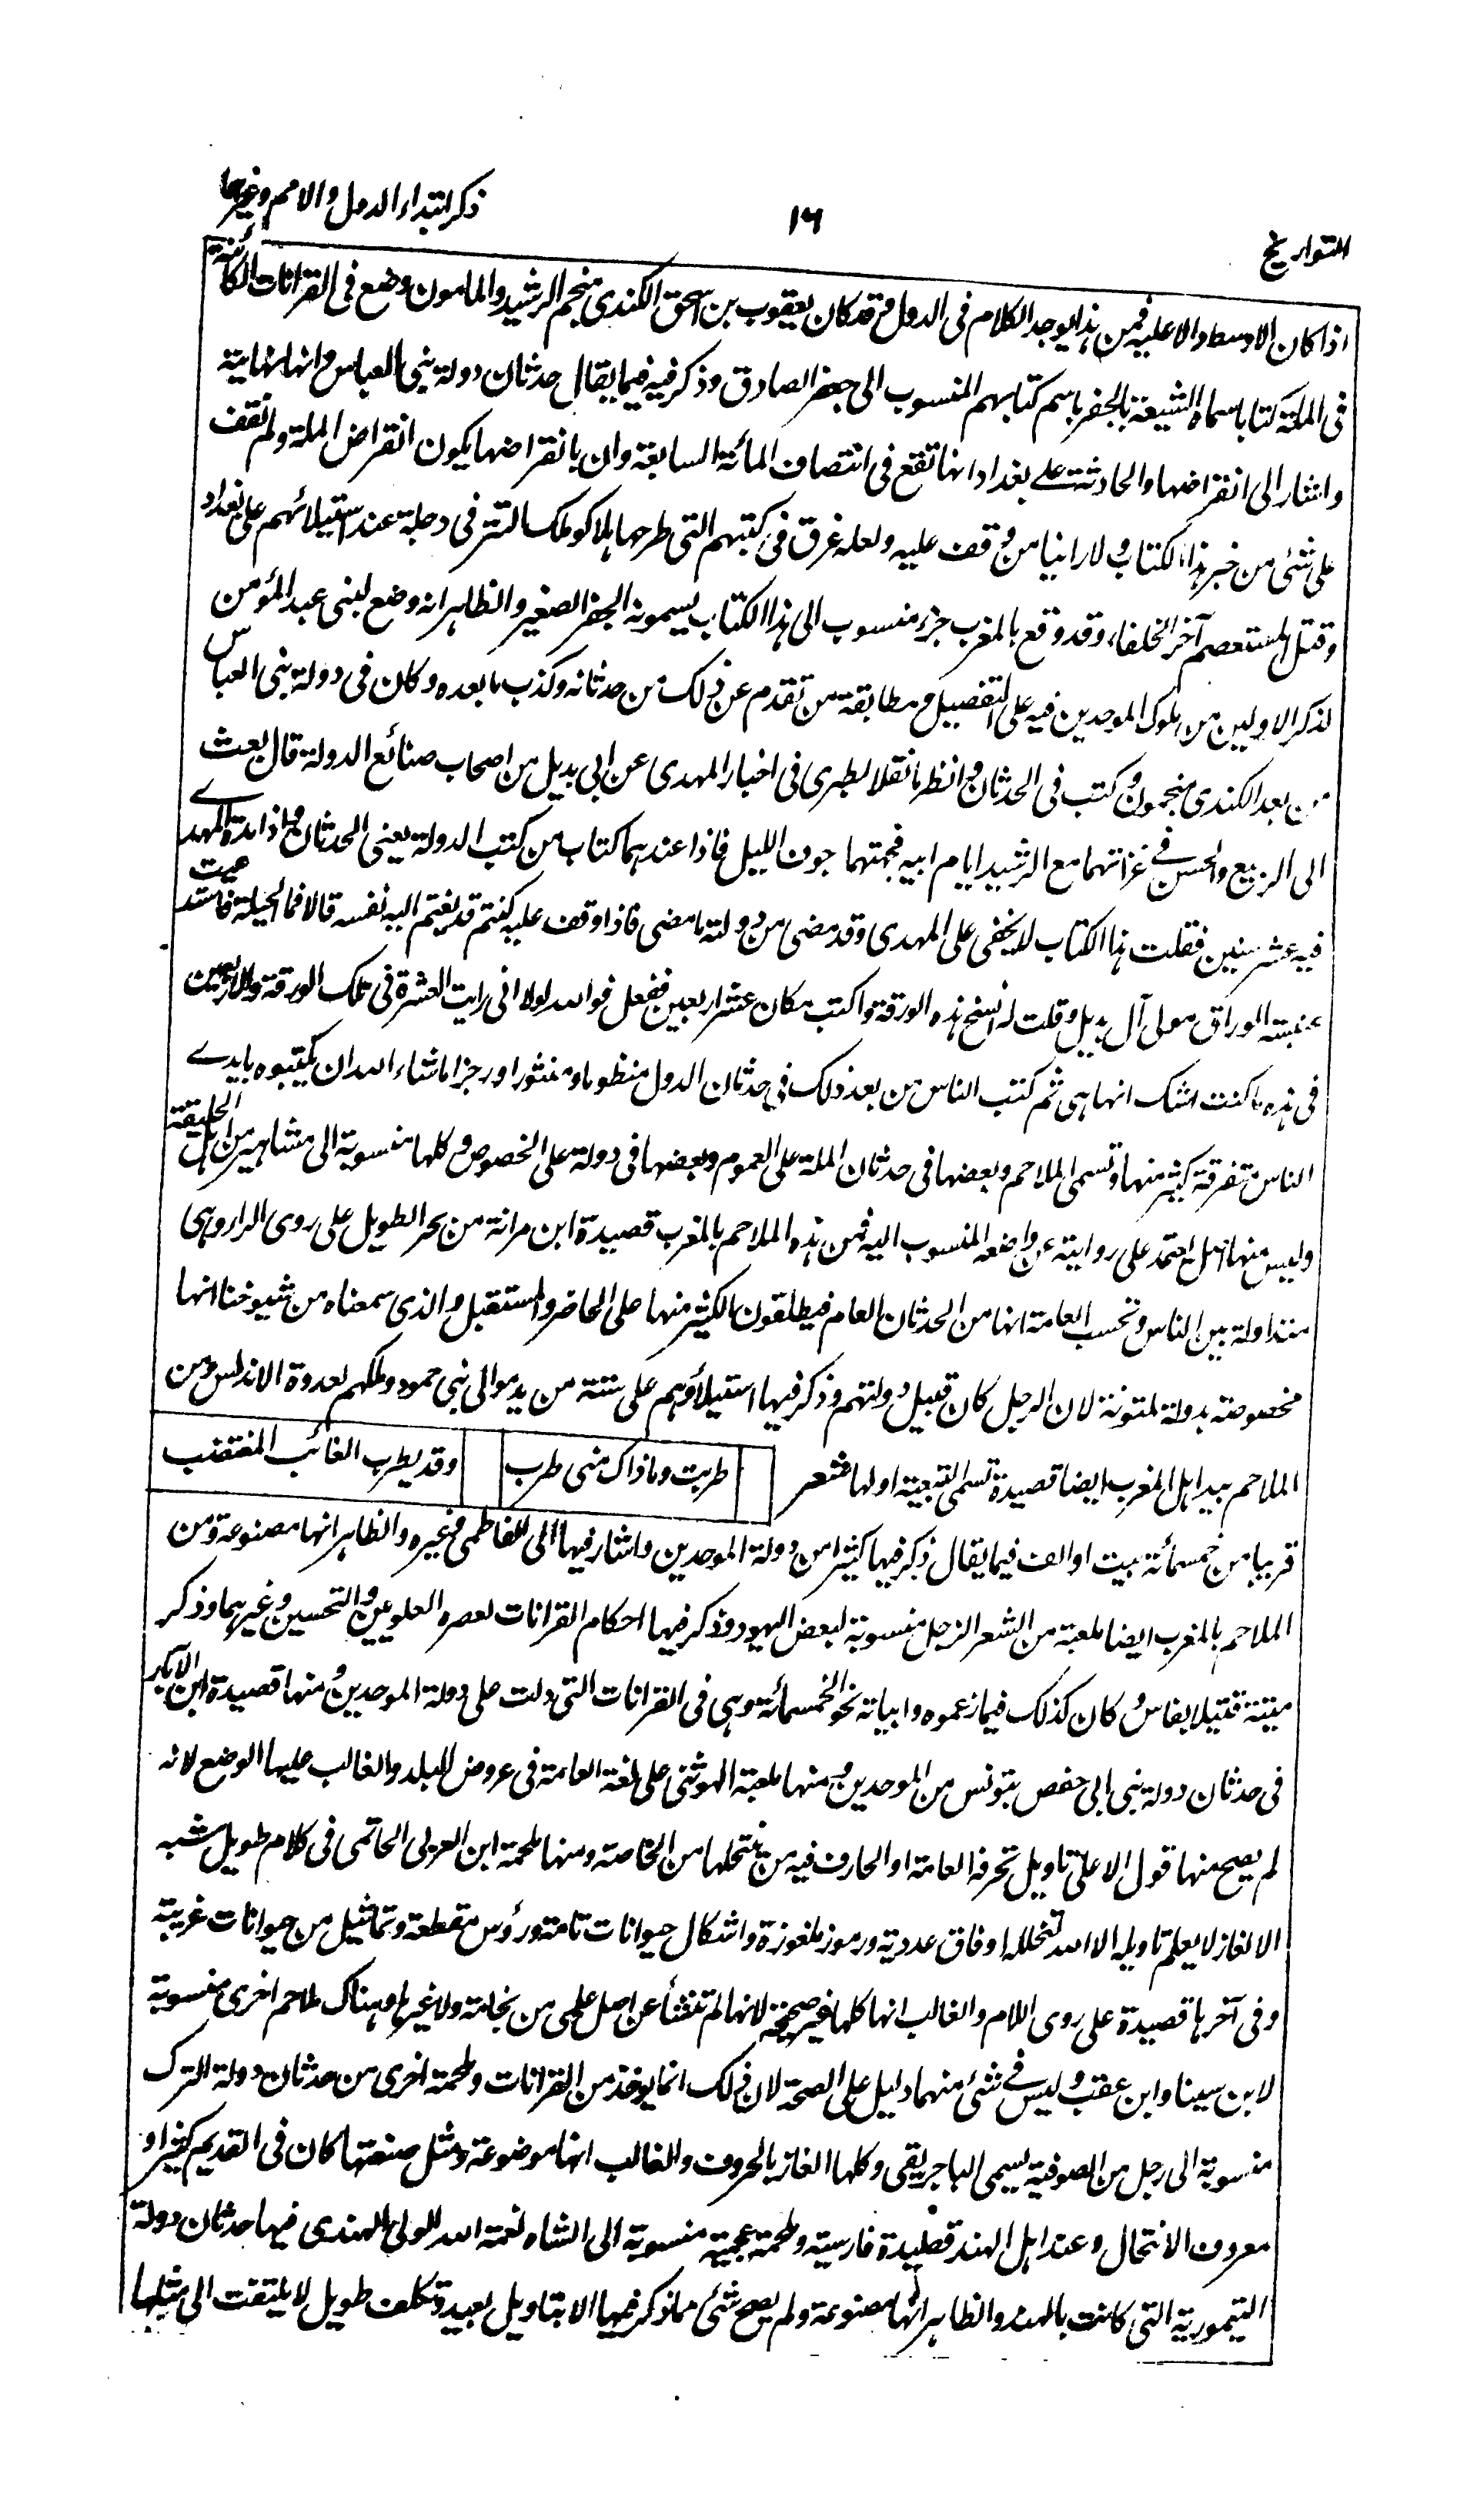 التواريخ
١٦
ذكر ابتداء الدول والامم وغيرها
اذا كان الاوسط دالا عليه فمن هذا يوجد الكلام فى الدول وقد كان يعقوب بن اسحق الكندى منجم الرشيد والمامون وضع فى القرانات الكائنة
فى الملة كتابا سماه الشيعة بالجفر باسم كتابهم المنسوب الى جعفر الصادق وذكر فيه فيما يقال حدثان دولة بنى العباس وانها نهاية
واشار الى انقراضها والحادثة على بغداد انها تقع فى انتصاف المائة السابعة وان بانقراضها يكون انقراض الملة ولم نقف
على شئ من خبر هذا الكتاب ولا راينا من وقف عليه ولعله غرق فى كتبهم التى طرحها هلاكو ملك التتر فى دجلة عند استيلائهم على بغداد
وقتل المستعصم آخر الخلفاء وقد وقع بالمغرب جزء منسوب الى هذا الكتاب يسمونه الجفر الصغير والظاهر انه وضع لبنى عبد المؤمن
لذكر الاولين من ملوك الموحدين فيه على التفصيل ومطابقة من تقدم عن ذلك من حدثانه وكذب ما بعده وكان فى دولة بنى العباس
من بعد الكندى منجمون وكتب فى الحدثان وانظر ما نقله الطبرى فى اخبار المهدى عن ابى بديل من اصحاب صنائع الدولة قال بعث
الى الربيع والحسن فى غزاتهما مع الرشيد ايام ابيه فجئتهما جوف الليل فاذا عندهما كتاب من كتب الدولة يعنى الحدثان واذا مدة المهدے
فيه عشر سنين فقلت هذا الكتاب لا يخفى على المهدى وقد مضى من دولته ما مضى فاذا وقف عليه كنتم قد نعيتم اليه نفسه قالا فما الحيلة فاستدعيت
عنبسة الوراق مولى آل بديل وقلت له انسخ هذه الورقة واكتب مكان عشر اربعين ففعل فوالله لولا انى رايت العشرة فى تلك الورقة والاربعين
فى هذه ما كنت اشك انها هى ثم كتب الناس من بعد ذلك فى حدثان الدول منظوما ومنثورا ورجزا ما شاء الله ان يكتبوه بايدے
الناس متفرقة كثير منها وتسمى الملاحم وبعضها فى حدثان الملة على العموم وبعضها فى دولة على الخصوص وكلها منسوبة الى مشاهير من اهل الخليقة
وليس منها اصل يعتمد على روايته عن واضعه المنسوب اليه فمن هذه الملاحم بالمغرب قصيدة ابن مرانة من بحر الطويل على روى الراء وهى
متداولة بين الناس وتحسب العامة انها من الحدثان العام فيطلقون الكثير منها على الحاضر والمستقبل والذى سمعناه من شيوخنا انها
مخصوصة بدولة لمتونة لان الرجل كان قبيل دولتهم وذكر فيها استيلاؤهم على سبتة من يد موالى بنى حمود وملكهم لعدوة الاندلس ومن
الملاحم بيد اهل المغرب ايضا قصيدة تسمى التبعية اولها شعر
طربت وما ذاك منى طرب
وقد يطرب الغائب المغتصب
قريبا من خمسمائة بيت او الف فيما يقال ذكر فيها كثيرا من دولة الموحدين واشار فيها الى الفاطمى وغيره والظاهر انها مصنوعة ومن
الملاحم بالمغرب ايضا ملعبة من الشعر الزجل منسوبة لبعض اليهود وذكر فيها احكام القرانات لعصره العلويين والنحسين وغيرهما وذكر
ميتته قتيلا بفاس وكان كذلك فيما زعموه وابياته نحو الخمسمائة وهى فى القرانات التى دلت على دولة الموحدين ومنها قصيدة ابن الابار
فى حدثان دولة بنى ابى حفص بتونس من الموحدين ومنها ملعبة الهوثنى على لغة العامة فى عروض البلد والغالب عليها الوضع لانه
لم يصح منها قول الا على تاويل تحرفه العامة او الحارف فيه من ينتحلها من الخاصة ومنها ملحمة ابن العربى الحاتمى فى كلام طويل شبه
الالغاز لا يعلم تاويله الا الله تتخلله اوفاق عددية ورموز ملغوزة واشكال حيوانات تامة ورؤس مقطعة وتماثيل من حيوانات غريبة
وفى آخرها قصيدة على روى اللام والغالب انها كلها غير صحيحة لانها لم تنشأ عن اصل علمى من نجامة ولا غيرها وهناك ملاحم اخرى منسوبة
لابن سينا وابن عقب وليس فى شئ منهما دليل على الصحة لان ذلك انما يوخذ من القرانات وملحمة اخرى من حدثان دولة الترك
منسوبة الى رجل من الصوفية يسمى الباجريقى وكلها الغاز بالحروف والغالب انها موضوعة ومثل صنعتها كان فى القديم كثيرا و
معروف الانتحال وعند اهل الهند قصيدة فارسية وملحمة عجمية منسوبة الى الشاه نعمة الله الولى الهندى فيها حدثان دولة
التيمورية التى كانت بالهند والظاهر انها مصنوعة ولم يصح شئ مما ذكر فيها الا بتاويل بعيد وتكلف طويل لا يلتفت الى مثلها